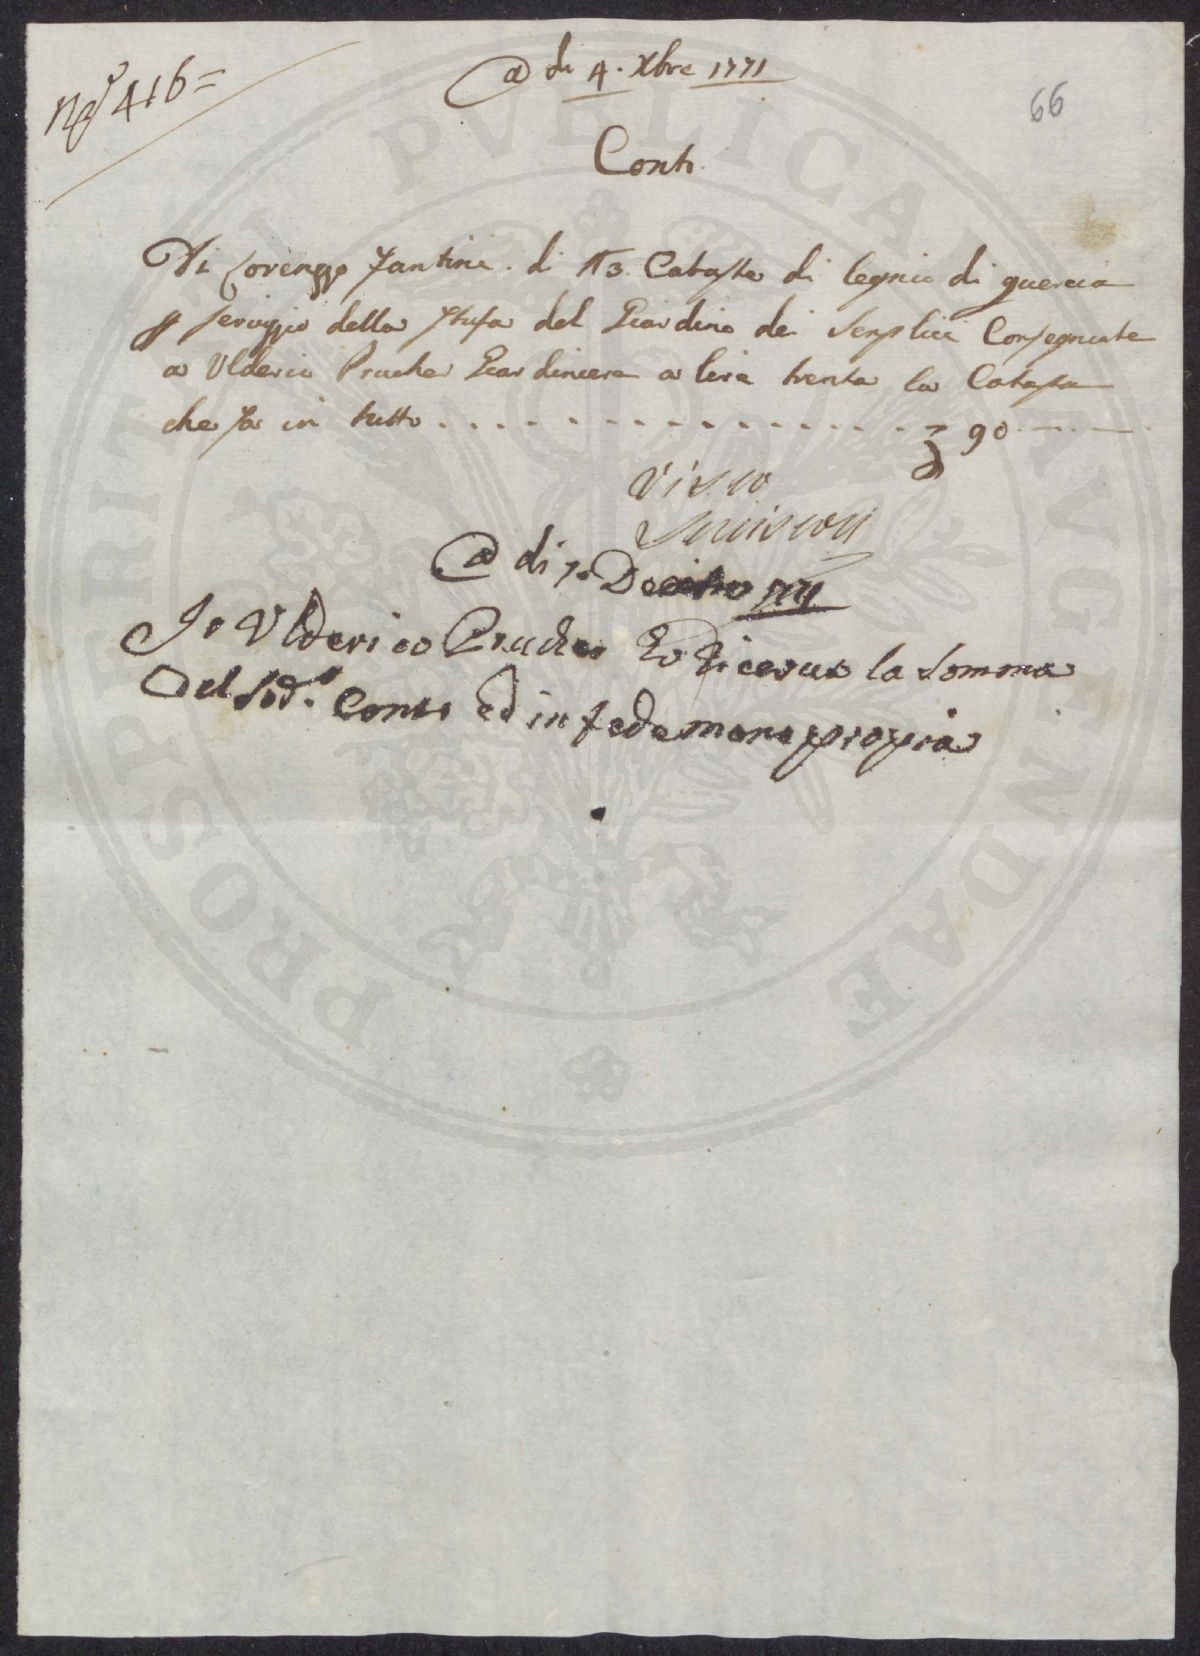 @ di 4. Xbre 1771
No 416=
66
Conto
Di Lorenzo Fantini. di N3. Cataste di legnie di quercia
p servizio della Stufa del Giardino dei Senplici Consegniate
a Ulderico Prucher Giardiniere a lire trenta la Catasta
che fa in tutto . . . . . . . . . . . . . . . . . £ 90 —
Visto
@ di 7. Decembre 1771
Io Ulderico Prucher ho Ricevuto la Somma
Del Sod.o Conto ed in fede mano propria
PROSPERITATI PVBLICAE AVGENDAE